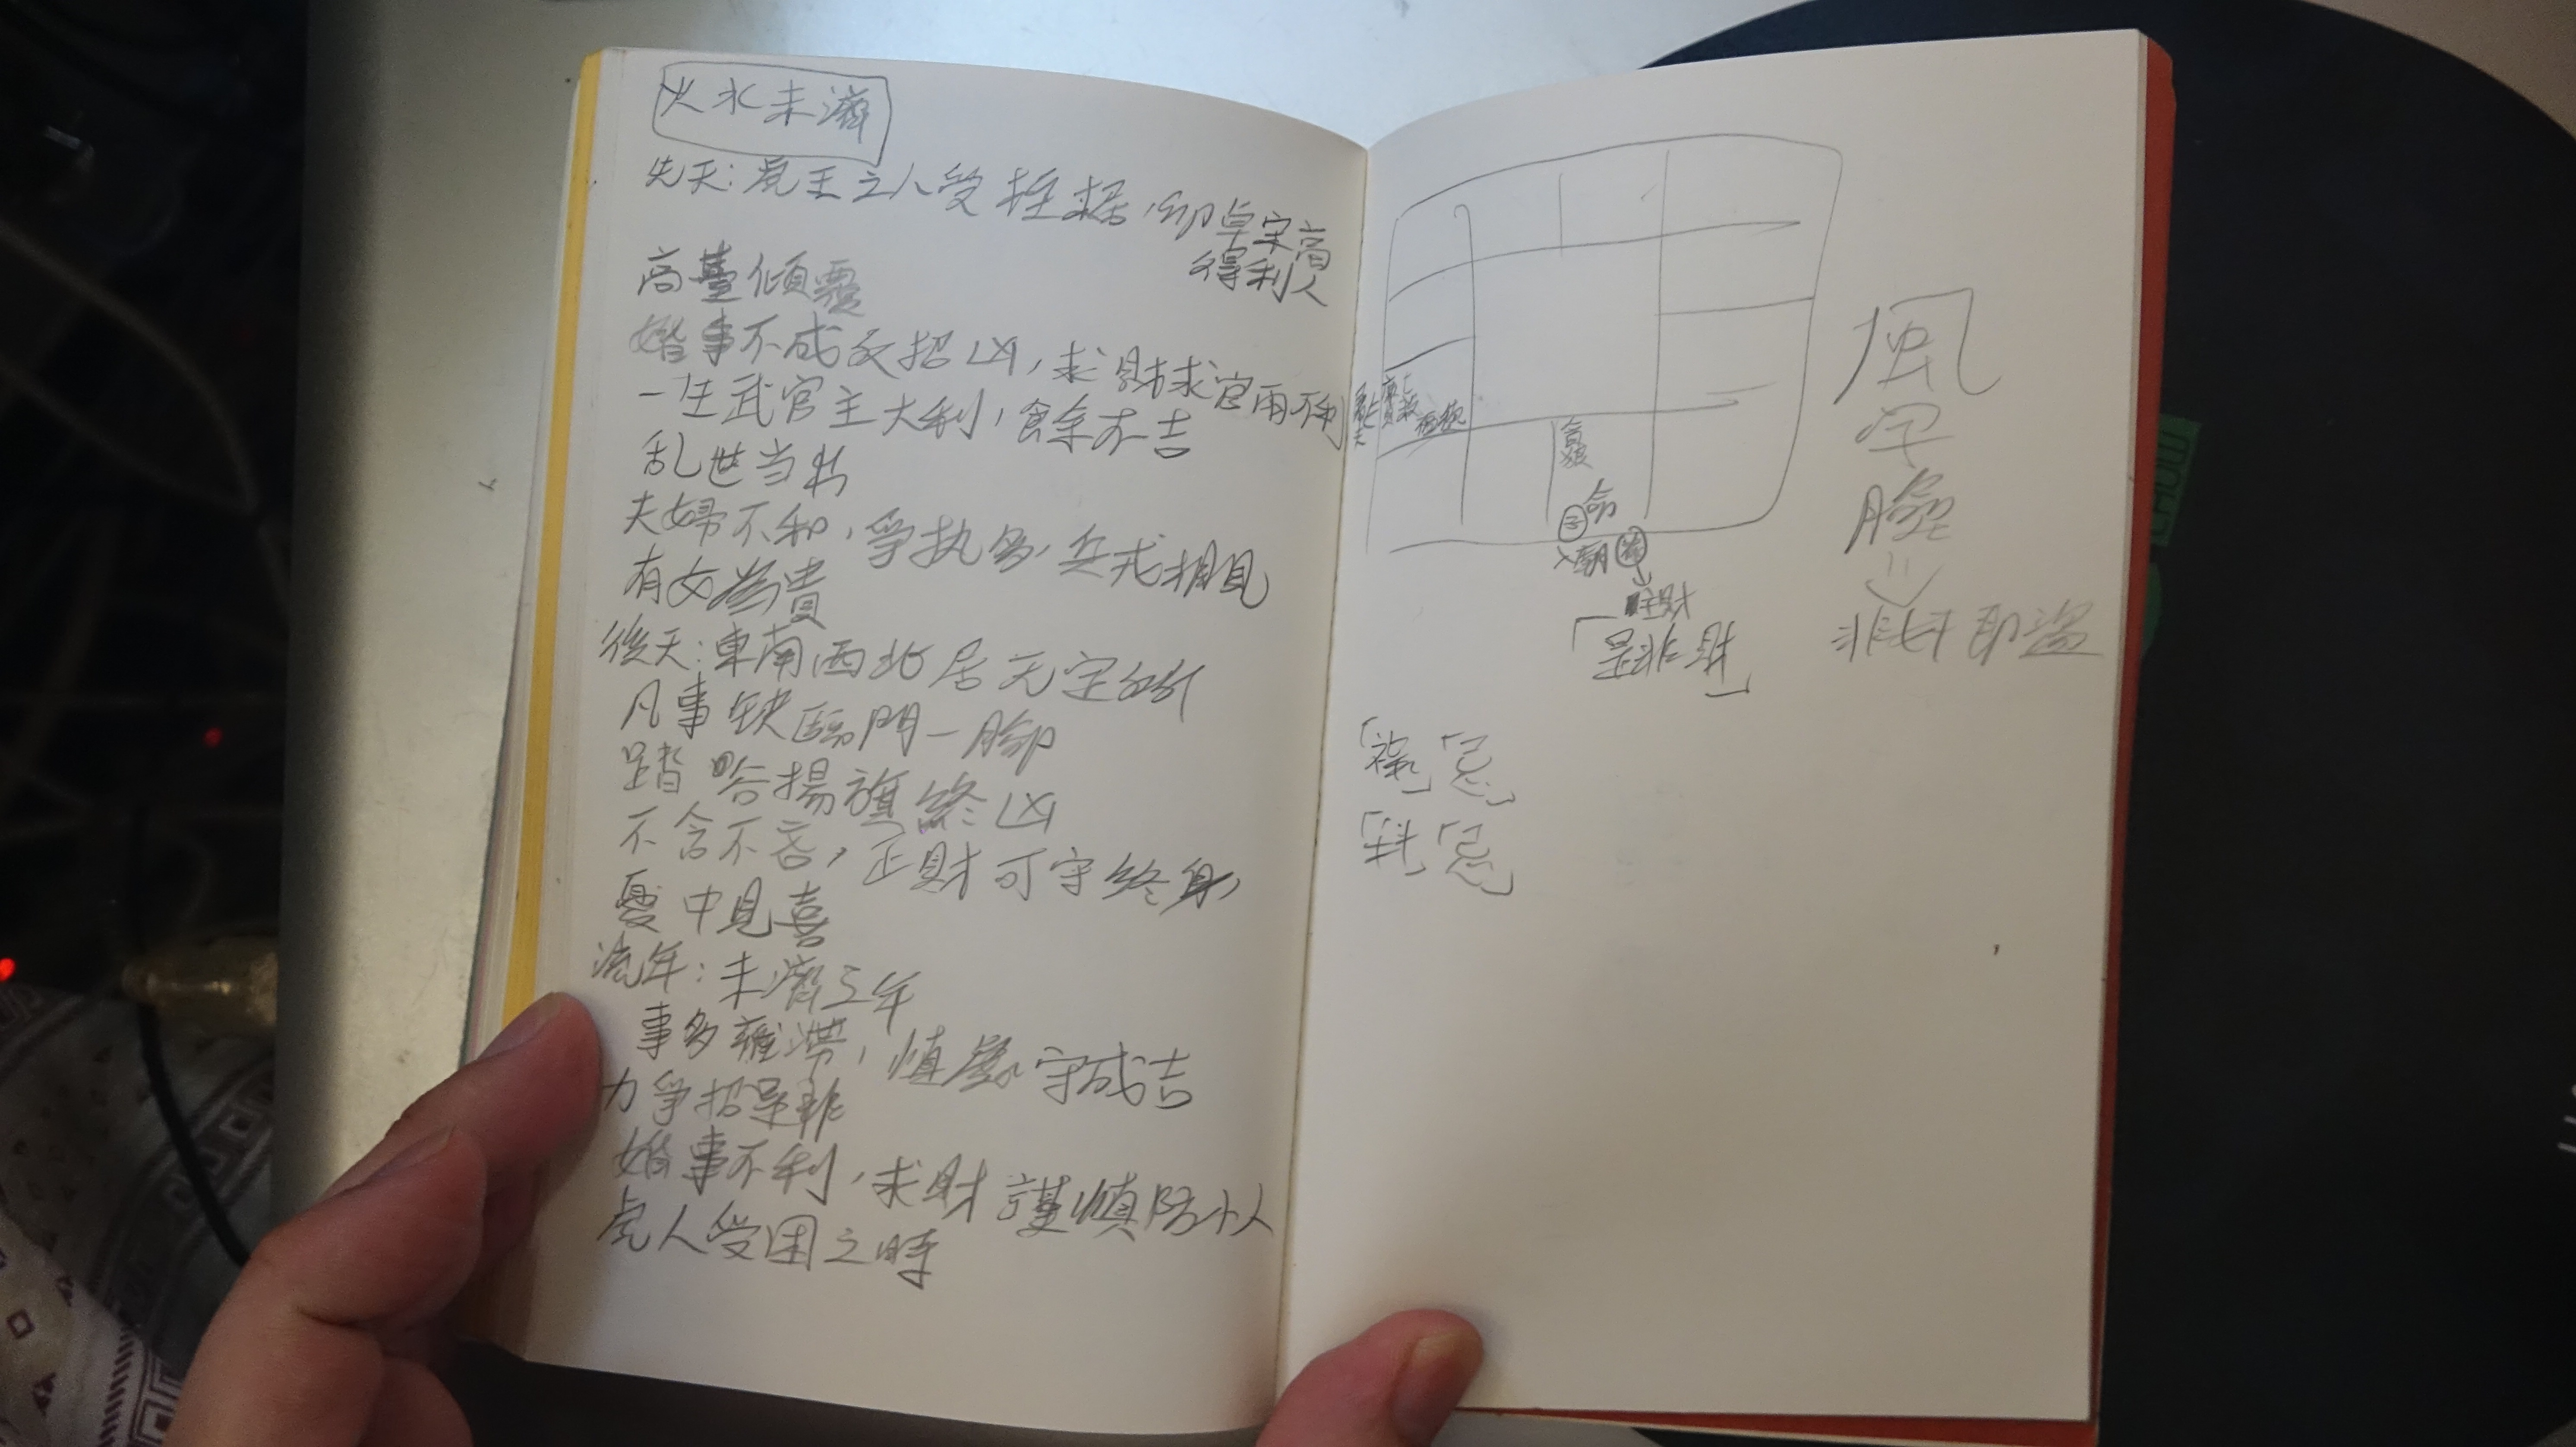 火水未濟
先天:虎王之人受挫揺,卽卓字高
得利人
高臺傾覆
婚事不成反招凶,求財求官兩不利
一生武官主大利,餘不吉
乱世当
夫婦不和,爭执多,兵戎相見
有女為貴
後天:東南西北居无定所
凡事缺臨門一腳
踏 揚旗終凶
不含不吞,正財可守終身
憂中見喜
流年:未濟三年
事多壅滯,慎處守成吉
力爭招是非
婚事不利,求財謹慎防小人
虎人受困之時
貪狼
命
子
廟 祿
財
「是非財」
「祿」「忌」
「科」「忌」
風
字
臉
非奸即盜